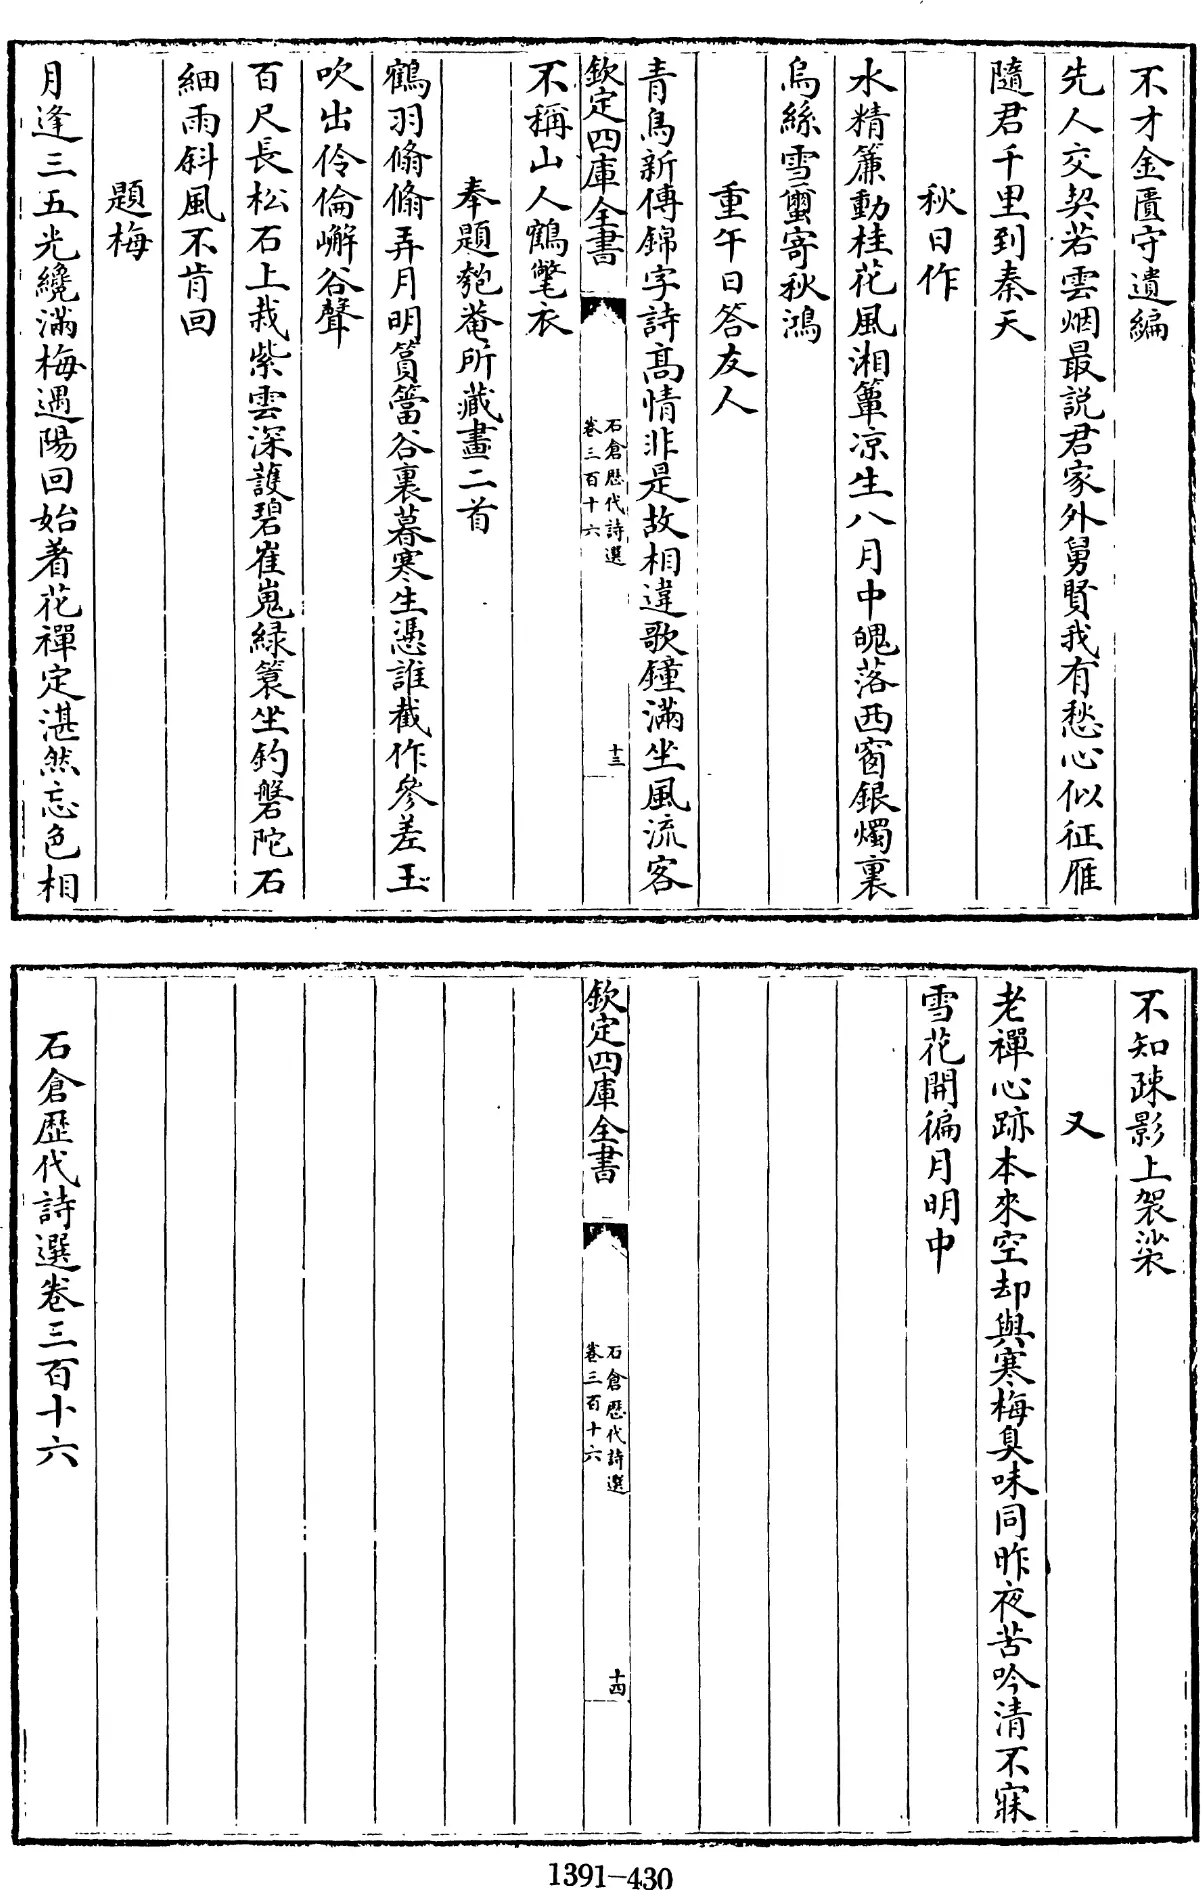 不才金匱守遺編
先人交契若雲烟最説君家外舅賢我有愁心似征雁
隨君千里到秦天
秋日作
水精簾動桂花風湘簟凉生八月中魄落西窗銀燭裏
烏絲雪璽寄秋鴻
重午日答友人
青鳥新傳錦字詩髙情非是故相違歌鐘滿坐風流客
欽定四庫全書
石倉歴代詩選
卷三百十六
十三
不稱山人鶴氅衣
奉題匏菴所藏畫二首
鶴羽翛翛弄月明篔簹谷裏暮寒生憑誰截作參差玉
吹出伶倫嶰谷聲
百尺長松石上栽紫雲深護碧崔嵬緑簑坐釣磐陀石
細雨斜風不肯回
題梅
月逢三五光纔滿梅遇陽回始着花禪定湛然忘色相
不知疎影上袈裟
又
老禪心跡本來空却與寒梅臭味同昨夜苦吟清不寐
雪花開徧月明中
欽定四庫全書
石倉歴代詩選
卷三百十六
十四
石倉歴代詩選卷三百十六
1391-430